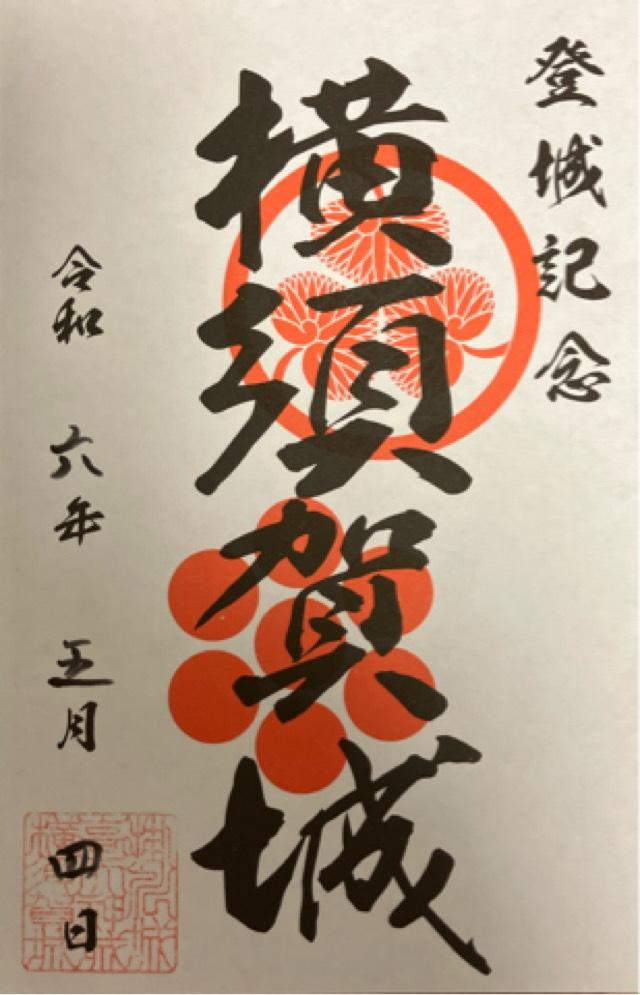 登城記念
横須賀城
令和 六年 五月 四日